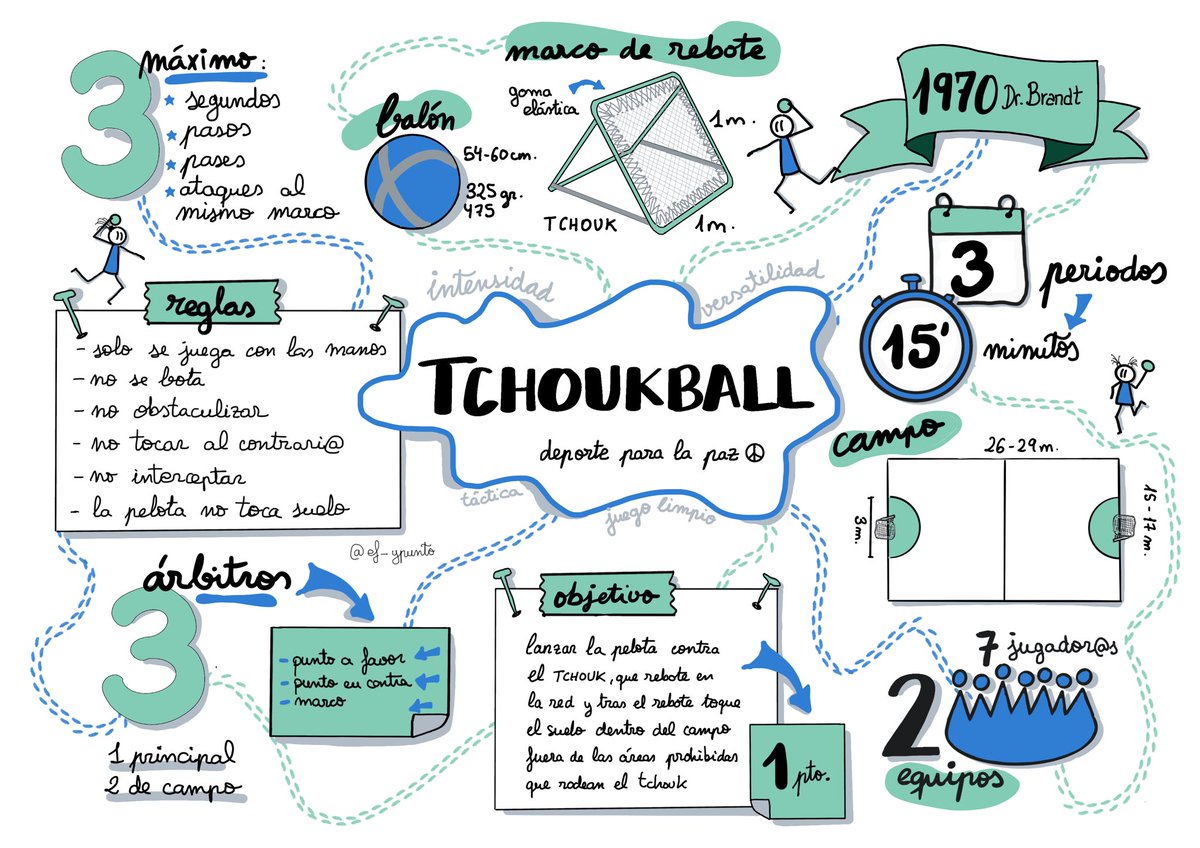 3 máximo:
segundos
pasos
pases
ataques al
mismo marco
balón
54-60cm.
325 gr.
475
marco de rebote
goma
elástica
1m.
1m.
TCHOUK
1970 Dr. Brandt
3 periodos
15' minutos
reglas
- solo se juega con las manos
- no se bota
- no obstaculizar
- no tocar al contrari@
- no interceptar
- la pelota no toca suelo
intensidad
versatilidad
TCHOUKBALL
deporte para la paz
táctica
juego limpio
@ef_ypunto
campo
26-29m.
3m.
15-17m.
árbitros
3
1 principal
2 de campo
- punto a favor
- punto en contra
- marco
objetivo
lanzar la pelota contra
el TCHOUK, que rebote en
la red y tras el rebote toque
el suelo dentro del campo
fuera de las áreas prohibidas
que rodean el tchouk
1 pto.
7 jugador@s
2
equipos